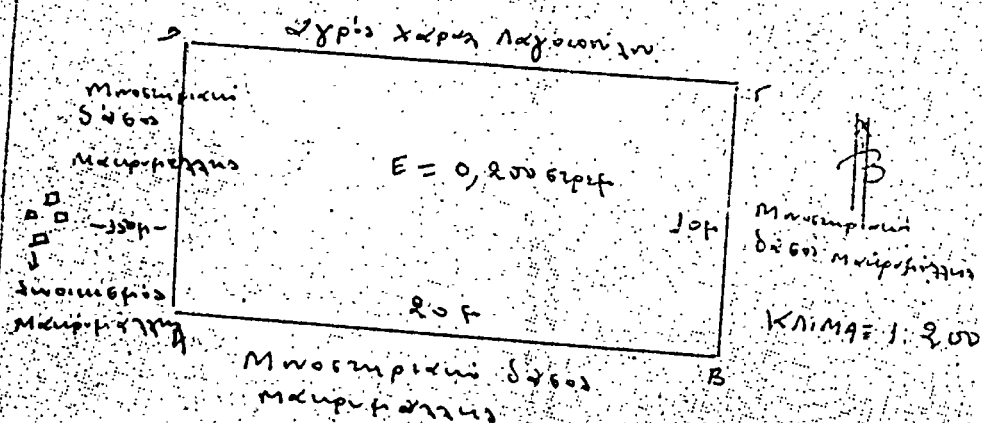 Δ
Αγρός Χάρολ Λαγοπούλου
Γ
Μοναστηριακό
δάσος
Μακρυμάλλης
Ε = 0,200 στρεμ
Β
10μ
Μοναστηριακό
δάσος Μακρυμάλλης
Συνοικισμός
Μακρυμάλλης
Α
20 μ
ΚΛΙΜΑ = 1:200
Μοναστηριακό δάσος
Μακρυμάλλης
Β